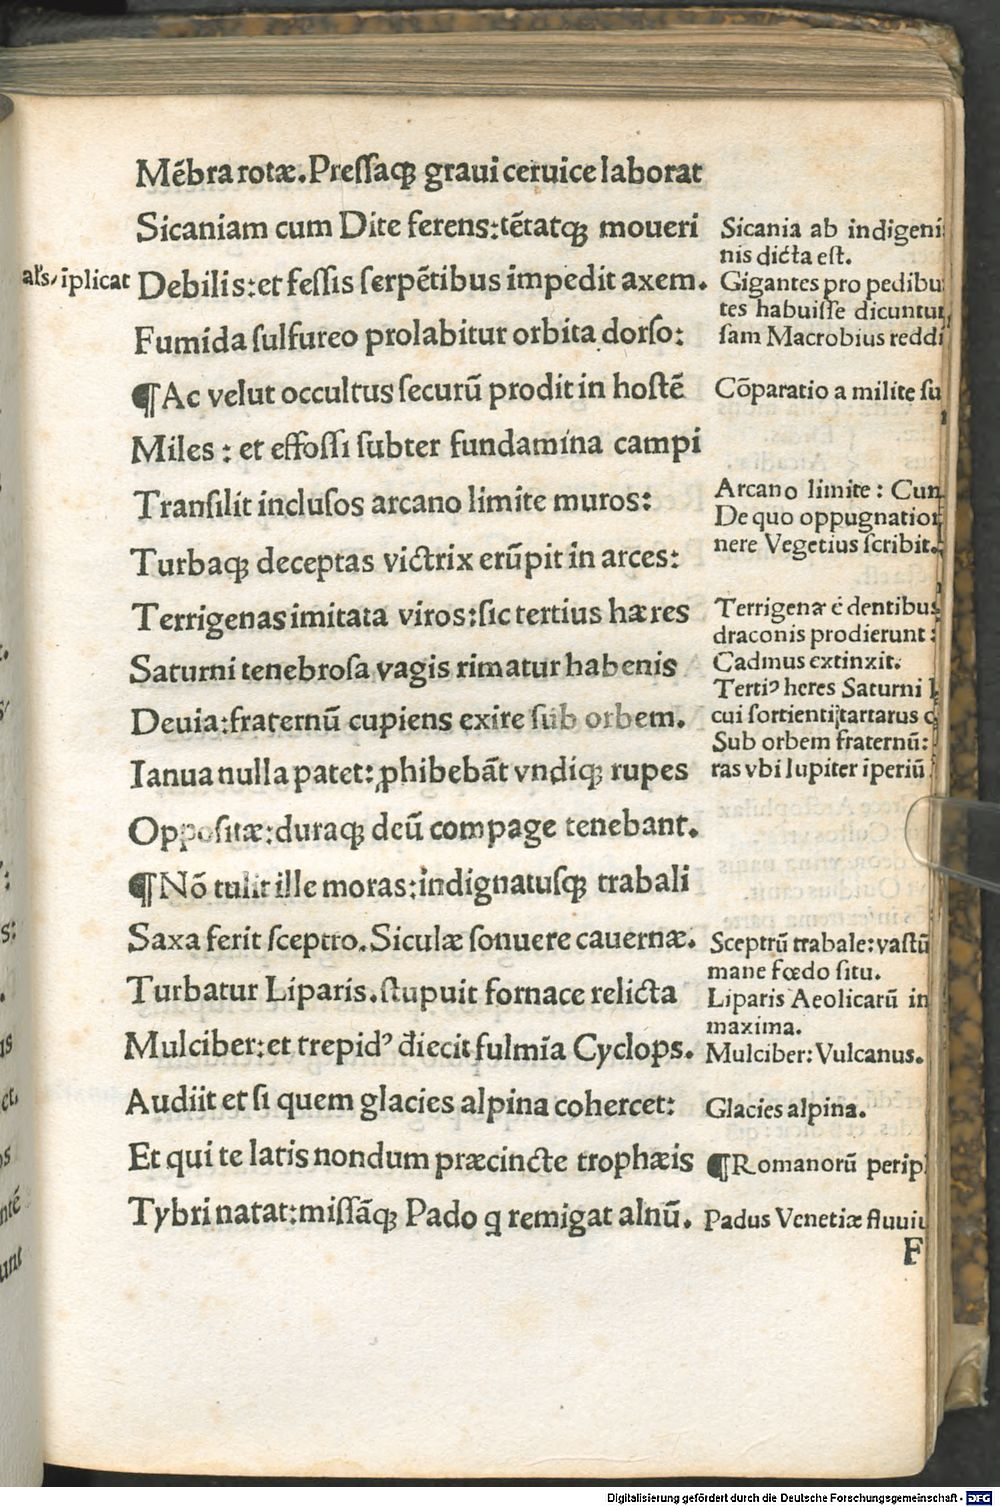 Mēbra rotæ. Preſſaqꝫ graui ceruice laborat
Sicaniam cum Dite ferens: tētatqꝫ moueri
Debilis: et feſſis ſerpētibus impedit axem.
Fumida ſulfureo prolabitur orbita dorſo:
¶Ac velut occultus ſecurū prodit in hoſtē
Miles: et effoſſi ſubter fundamina campi
Tranſilit incluſos arcano limite muros:
Turbaqꝫ deceptas victrix erūpit in arces:
Terrigenas imitata viros: ſic tertius hæres
Saturni tenebroſa vagis rimatur habenis
Deuia: fraternū cupiens exire ſub orbem.
Ianua nulla patet: ꝓhibebāt vndiqꝫ rupes
Oppoſitæ: duraqꝫ deū compage tenebant.
¶Nō tulit ille moras: indignatuſqꝫ trabali
Saxa ferit ſceptro. Siculæ ſonuere cauernæ.
Turbatur Liparis. ſtupuit fornace relicta
Mulciber: et trepidꝰ điecit fulmīa Cyclops.
Audiit et ſi quem glacies alpina cohercet:
Et qui te latis nondum præcincte trophæis
Tybri natat: miſſāqꝫ Pado q remigat alnū.
als, īplicat
Sicania ab indigeni
nis dicta eſt.
Gigantes pro pedibu
tes habuiſſe dicuntur,
ſam Macrobius reddi
Cōparatio a milite ſu
Arcano limite: Cun
De quo oppugnatiōn
nere Vegetius ſcribit.
Terrigenæ é dentibus
draconis prodierunt:
Cadmus extinxit.
Tertiꝰ heres Saturni
cui ſortienti tartarus
Sub orbem fraternū:
ras vbi Iupiter īperiū
Sceptrū trabale: vaſtū
mane fœdo ſitu.
Liparis Aeolicarū in
maxima.
Mulciber: Vulcanus.
Glacies alpina.
¶Romanorū perip
Padus Venetiæ fluui
F
Digitalisierung gefördert durch die Deutsche Forschungsgemeinschaft - DFG